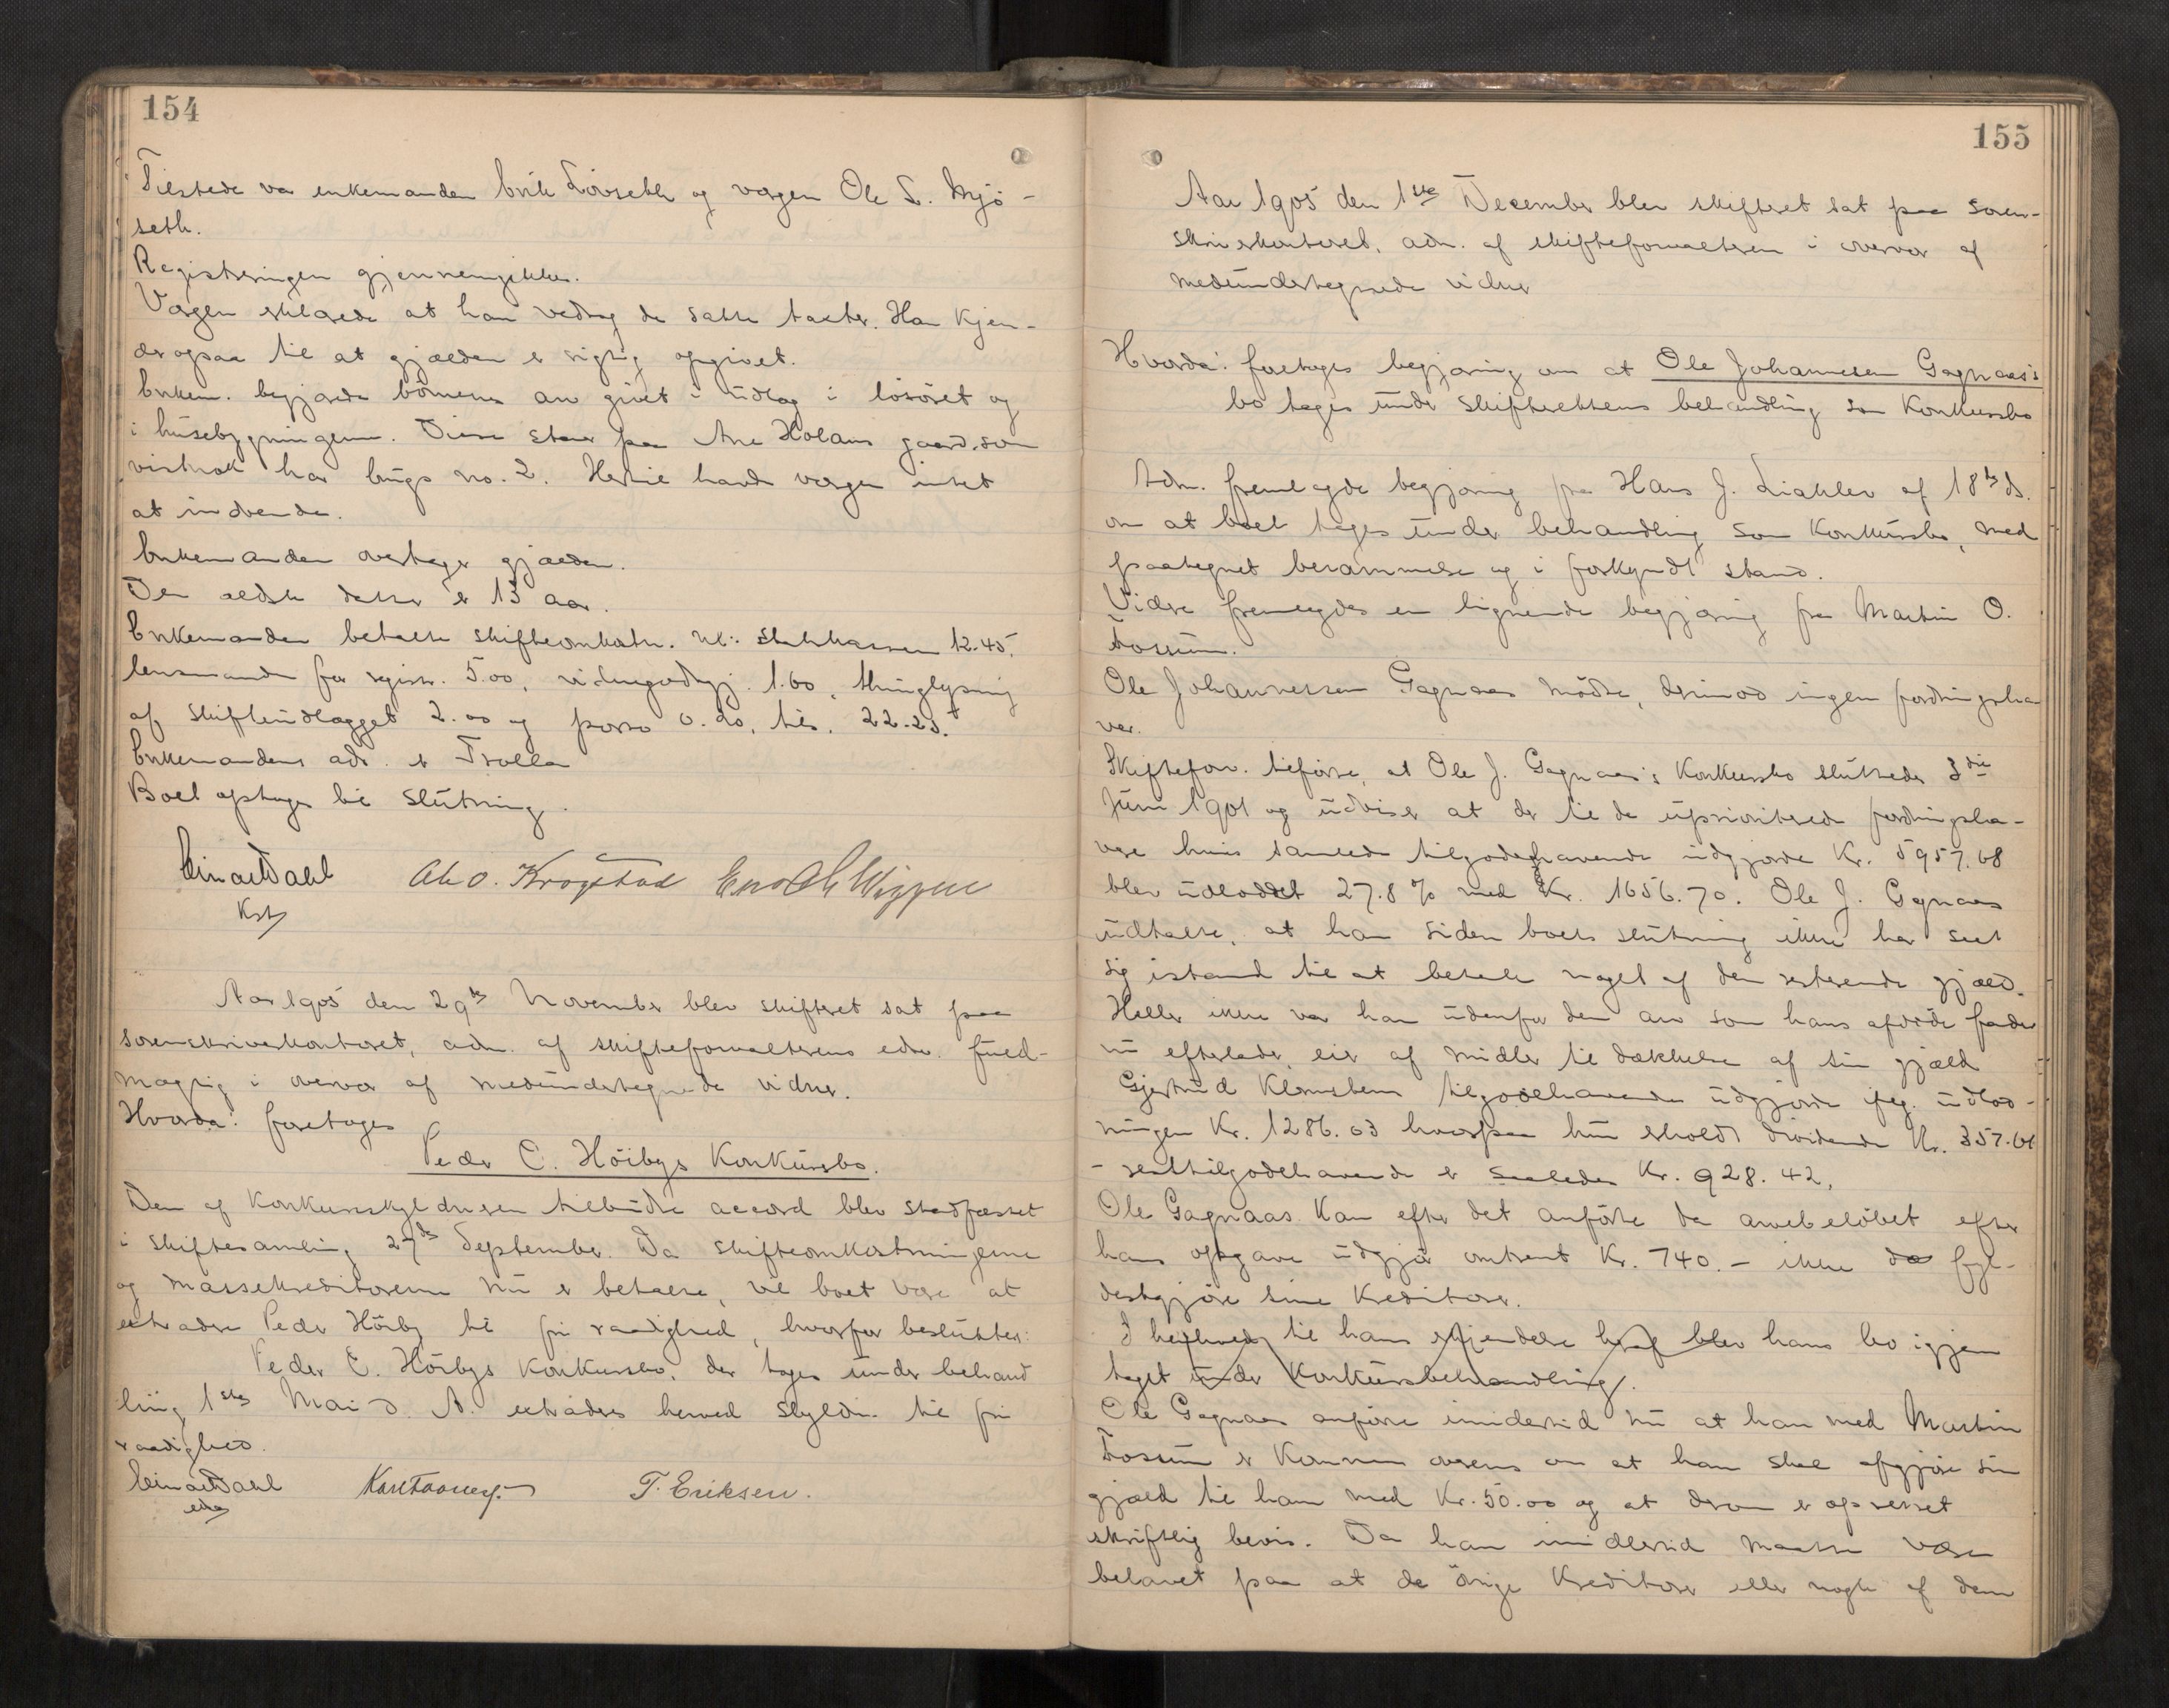 154
Tilstede var enkemanden Erik Lövseth og vergen Ole L. Mjö-
seth.
Registreringen gjennemgikkes.
Vergen erklærede at han vedtog de satte takster. Han kjen-
der ogsaa til at gjælden er rigtig opgivet.
Enkem. begjærede börnenes arv givet i udlæg i lösöret og
i husebygningerne. Disse staar paa Are Holans gaard som
vistnok har brugs no. 2. Hertil havde vergen intet
at indvende.
Enkemanden overtager gjælden.
Den ældste datter er 13 aar.
Enkemanden betalte skifteomkostn. nl: statskassen 12.45,
lensmanden for registr. 5.00, vidnegodtgj. 1.60, thinglysning
af skifteudlægget 2.00 og porto 0.20, tils. 22.25.
Enkemandens adr. er Trolla
Boet optages til slutning.
Einar Dahl Ole O. Krogstad Enok Wiggen
Kst
Aar 1905 den 29de November blev skifteret sat paa
sorenskriverkontoret, adm. af skifteforvalterens edsv. fuld-
mægtig i overvær af medundertegnede vidner.
Hvorda: foretoges
Peder C. Höibys Konkursbo.
Den af Konkursskyldneren tilbudte accord blev stadfæstet
i skiftesamling 27de September. Da skifteomkostningerne
og massekreditorerne nu er betalte, vil boet være at
extradere Peder Höiby til fri raadighed, hvorfor besluttes:
Peder C. Höibys Konkursbo, der toges under behand
ling 1ste Mai d. A. extraderes herved skyldn. til fri
raadighed.
Einar Dahl T. Eriksen.
eds
155
Aar 1905 den 1ste December blev skifteret sat paa soren-
skriverkontoret, adm. af skifteforvalteren i overvær af
medundertegnede vidner
Hvorda: foretoges begjæring om at Ole Johannesen Gagnaas's
bo tages under skifterettens behandling som Konkursbo
Adm. fremlagde begjæring fra Hans J. Liakler af 18de ds.
om at boet tages under behandling som Konkursbo, med
paategnet berammelse og i forkyndt stand.
Videre fremlagdes en lignende begjæring fra Martin O.
Fossum.
Ole Johannessen Gagnaas mödte, derimod ingen fordringsha-
ver.
Skifteforv. tilförte, at Ole J. Gagnaas's Konkursbo sluttedes 3die
Juni 1901 og udviser at der til de uprioriterede fordringsha-
vere hvis samlede tilgodehavende udgjorde Kr. 5957.68
blev udloddet 27.8 % med Kr. 1656.70. Ole J. Gagnaas
udtalte, at han siden boets slutning ikke har seet
sig istand til at betale noget af den resterende gjæld.
Heller ikke var han udenfor den arv som hans afdöde fader
nu efterlader eier af midler til dækkelse af sin gjæld
Gjertrud Klemetsens tilgodehavende udgjorde ifög. udlod-
ningen Kr. 1286.03 hvorpaa hun erholdt dividende Kr. 357.61
- resttilgodehavende er saaledes Kr. 928.42.
Ole Gagnaas kan efter det anförte da arvebelöbet efter
hans opgave udgjör omtrent Kr. 740.- ikke fyl-
destgjöre sine Kreditorer.
I henhold til hans erkjendelse heraf blev hans bo igjen
taget under Konkursbehandling.
Ole Gagnaas anförte imidlertid nu at han med Martin
Fossum er kommen overens om at han skal afgjöre sin
gjæld til ham med Kr. 50.00 og at derom er oprettet
skriftlig bevis. Da han imidlertid maatte være
belavet paa at de övrige Kreditorer eller nogle af dem